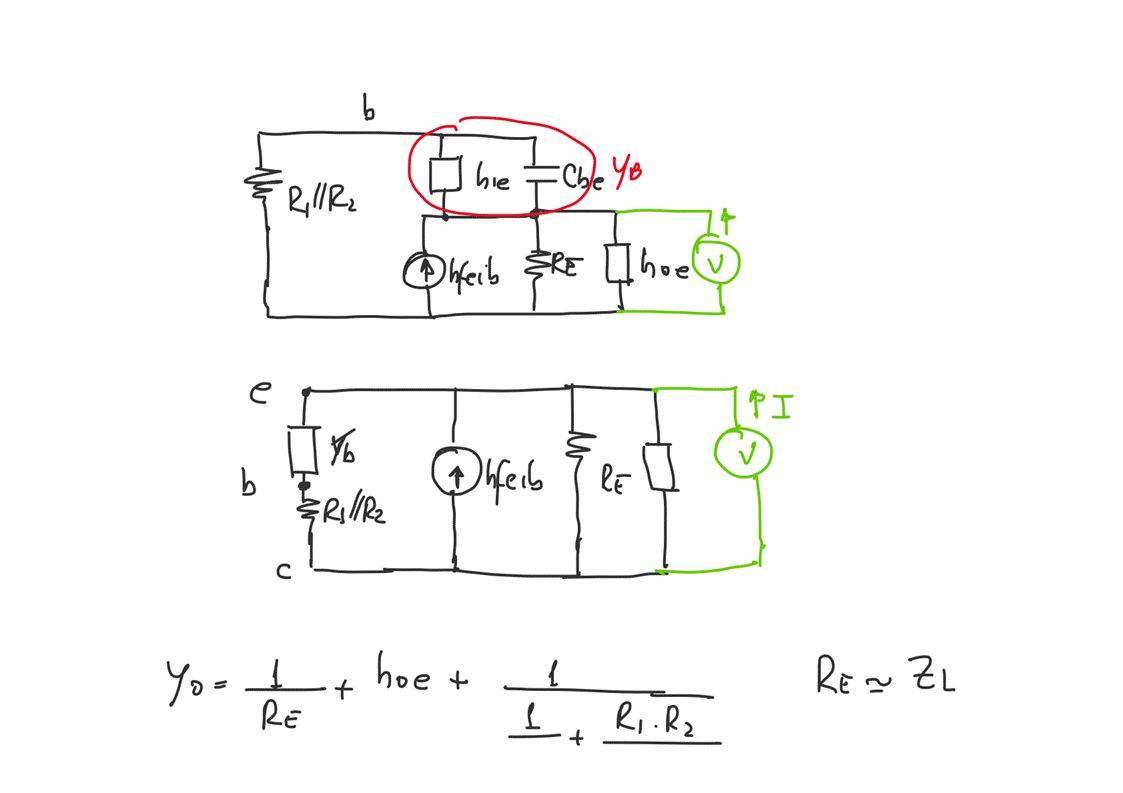 b
R1//R2
hie
Cbe
YB
hfeib
RE
hoe
V
e
Yb
b
R1//R2
c
hfeib
RE
V
I
Yo = 1/RE + hoe + 1/(1/ + R1.R2/)
RE ≃ ZL